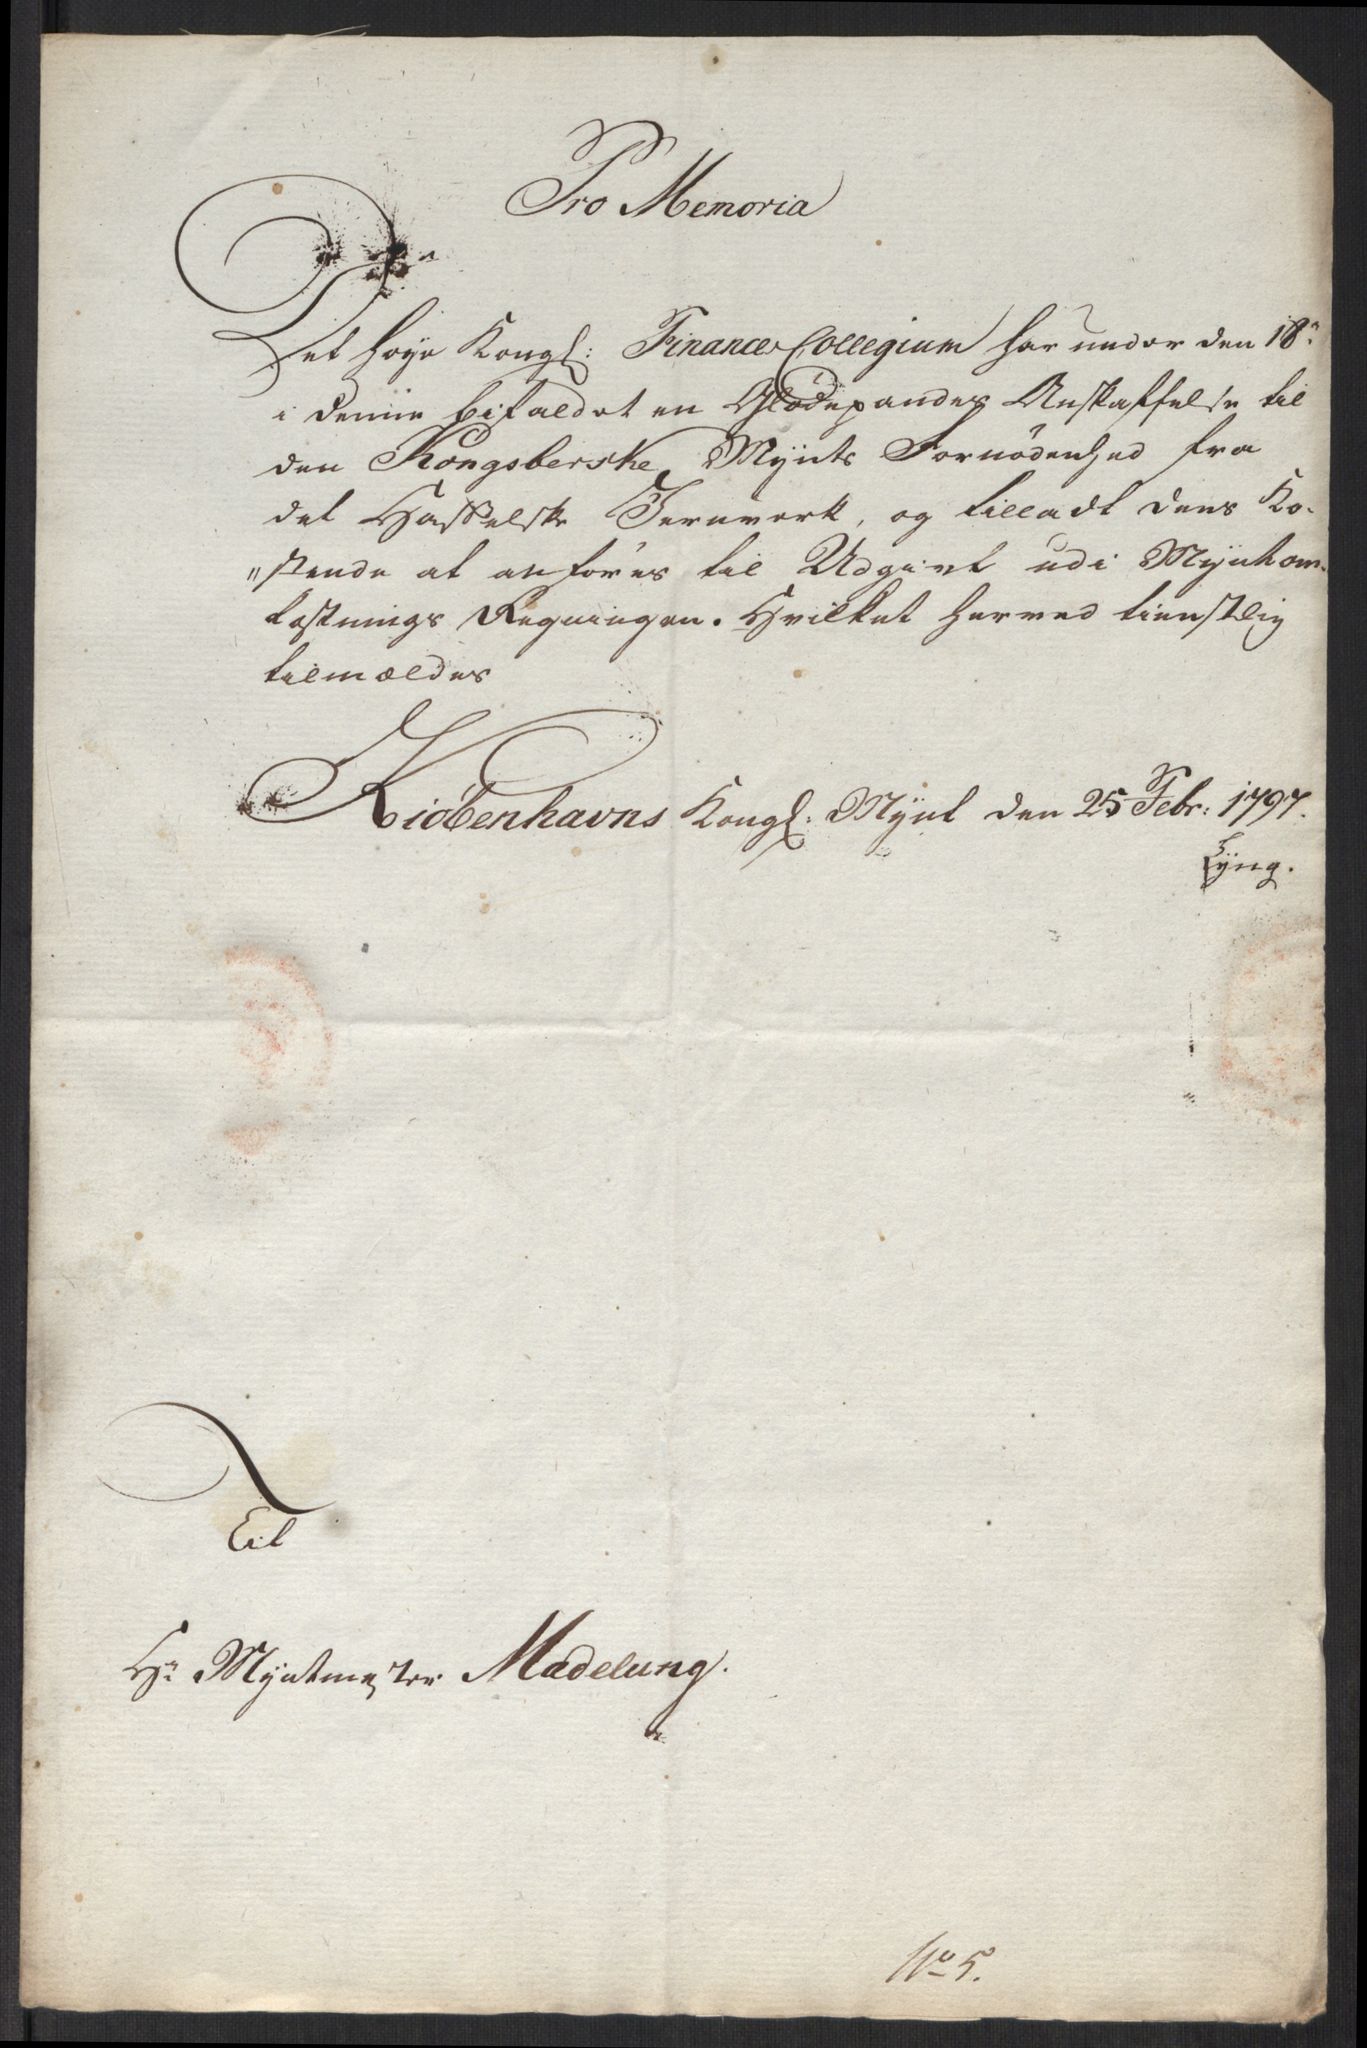 Pro Memoria
Det høye Kongl: Finance Collegium har under den 18de
i denne bifaldet en Glödepandes Anskaffelse til
den Kongsberske Mÿnts Fornödenhed fra
det Hasselske Jernverk, og tilladt dens Ko-
"stende at anföres til Udgivt udi Mÿntom-
kostnings Regningen. Hvilket herved tienstlig
tilmældes
Kiöbenhavns Kongl: Mÿnt den 25 Febr: 1797.
Lÿng.
Til
Hr Mÿntmester Madelung.
No 5.